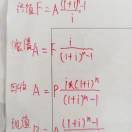 终值 F = A \frac{(1+i)^n-1}{i}
偿债 A = F \frac{i}{(1+i)^n-1}
回收 A = P \frac{i(1+i)^n}{(1+i)^n-1}
现值 = A \frac{(1+i)^n-1}{}